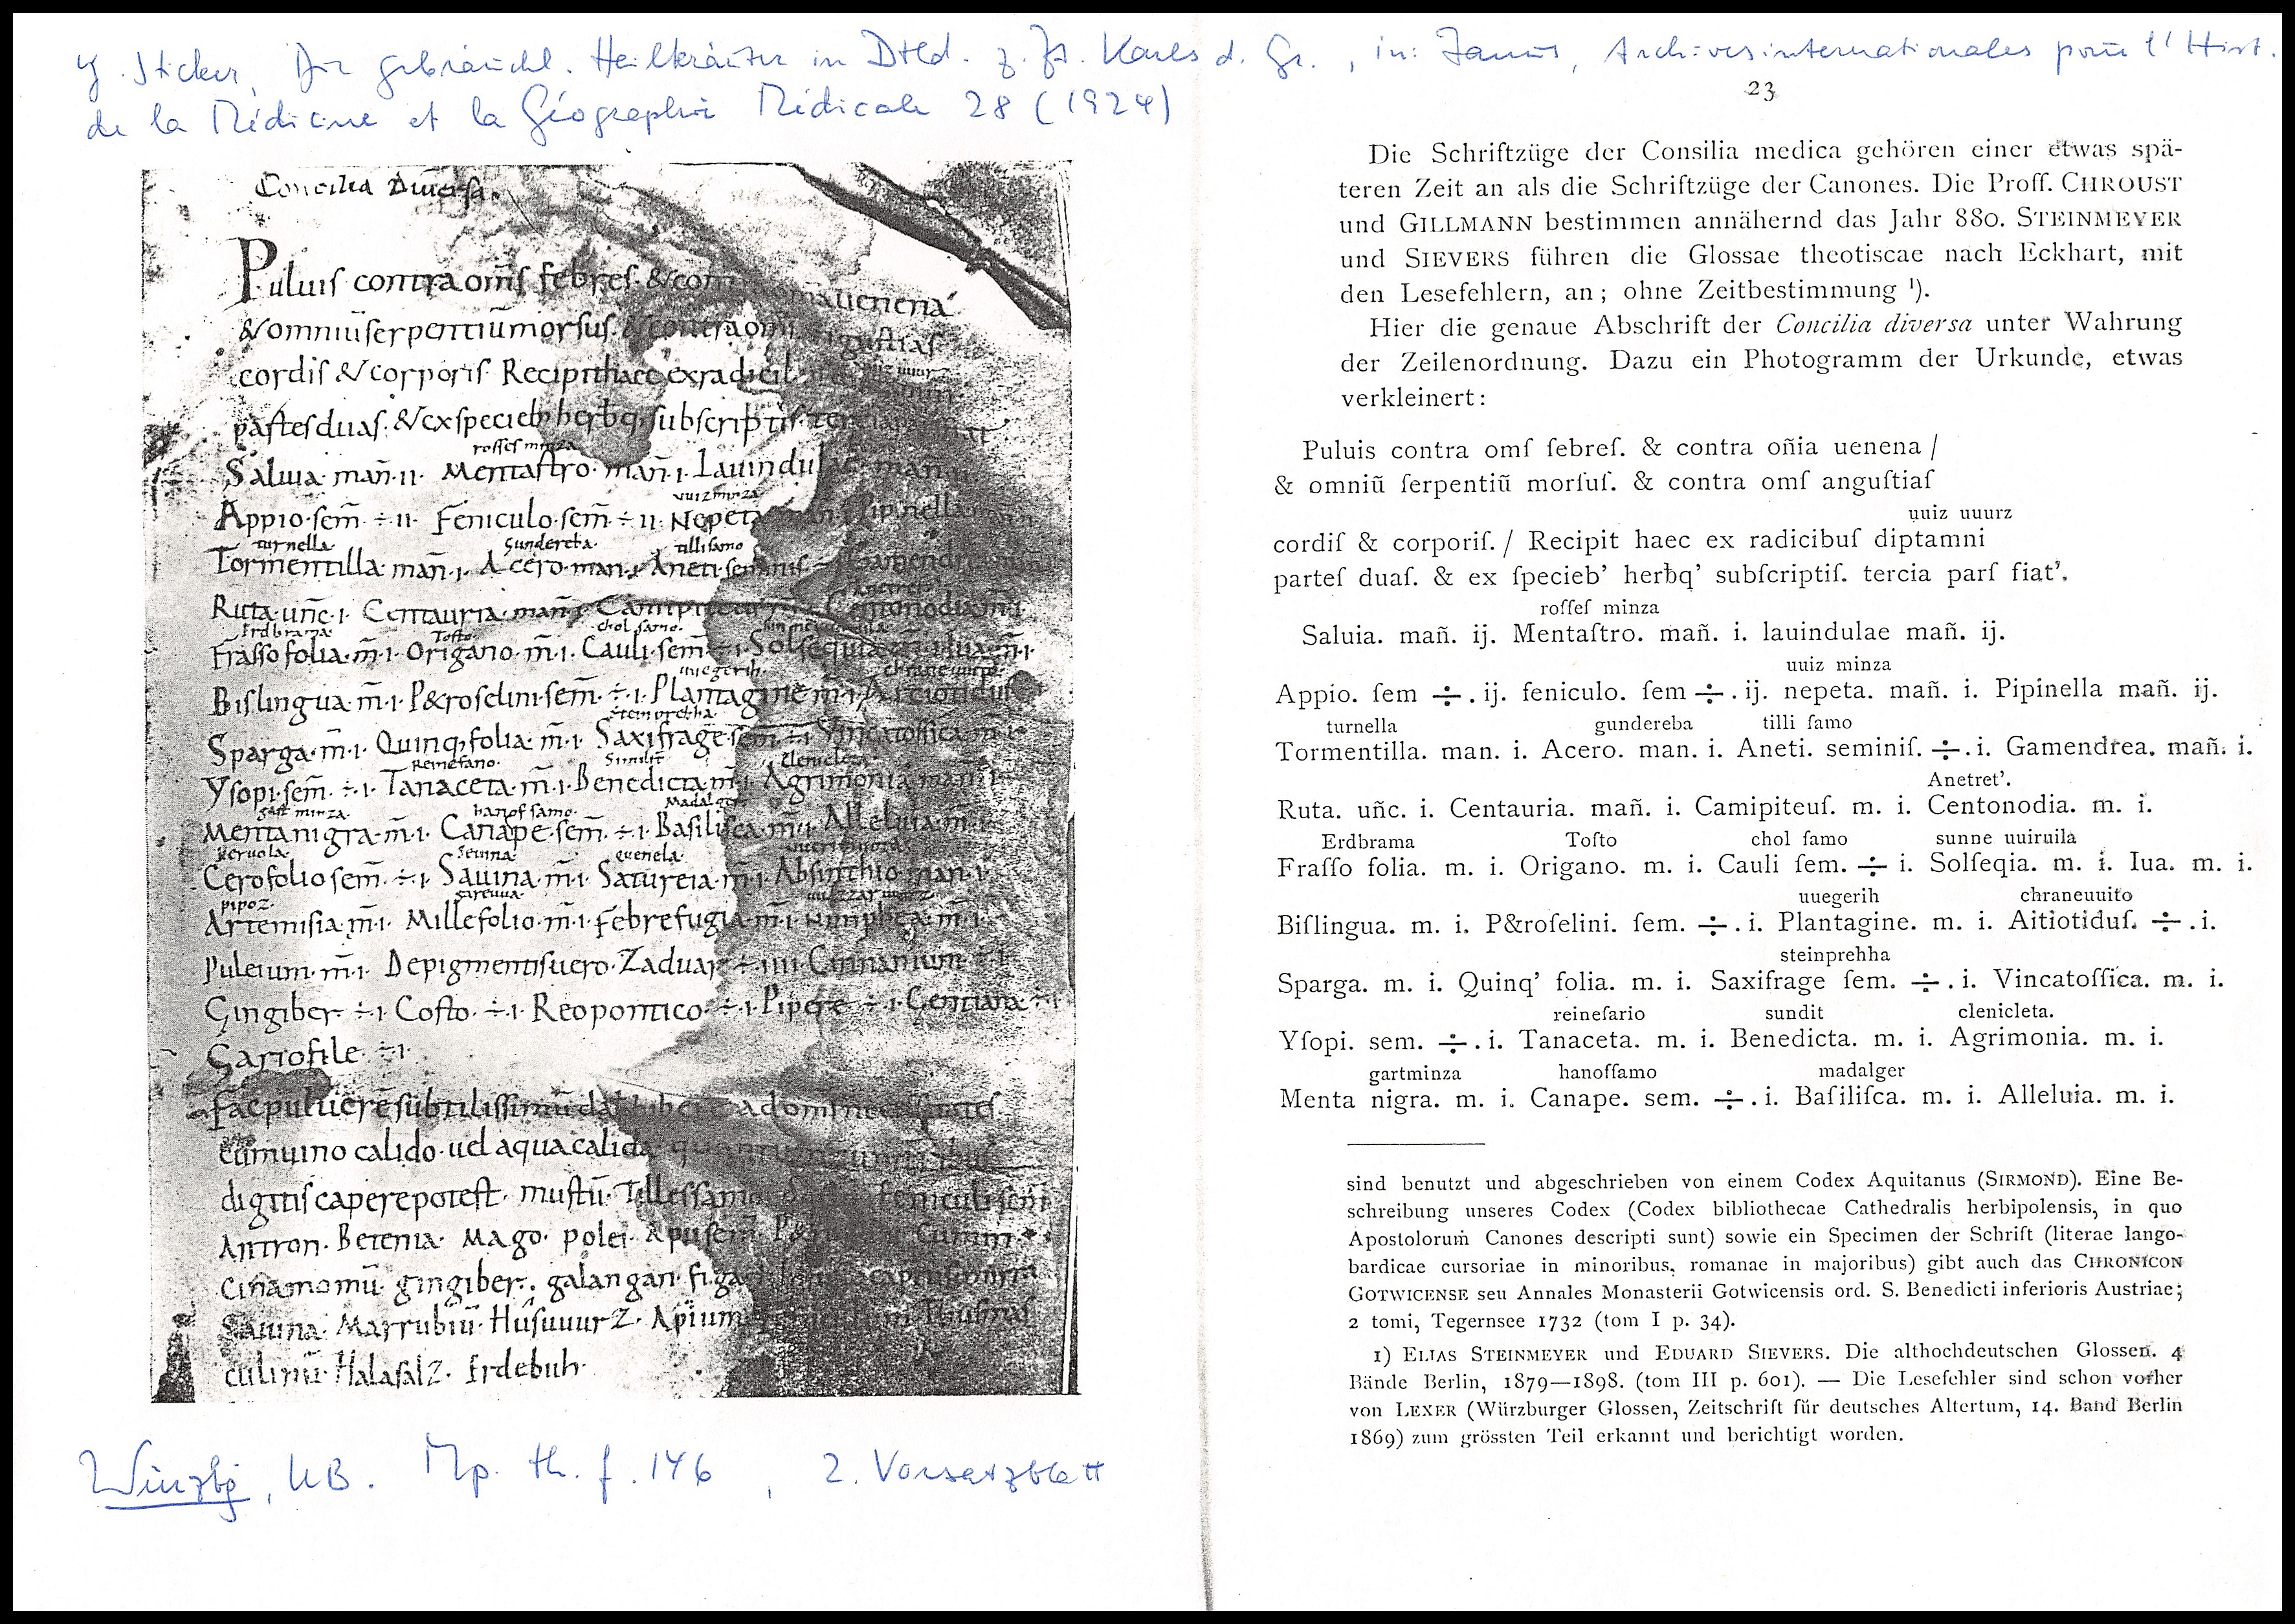 G. Sticker, Die gebräuchl. Heilkräuter in Dtld. z. Zt. Karls d. Gr., in: Janus, Archives internationales pour l'Hist.
de la Médicine et la Géographie Médicale 28 (1924)
Concilia Diuersa.
Puluiſ contra om̄ſ febreſ. & con uenena
& omniū ſerpentiū morſuſ. & contra om̄ guſtiaſ
cordiſ & corporiſ Recipit haec ex radicib
parteſ duaſ. & ex ſpecieb herbq. ſubſcriptiſ.
roſſeſ minza
Saluia. mañ. 11. Mentaſtro. mañ. 1. Lauindulae mañ
uuizminza
Appio. ſem̄ ÷ 11. Feniculo. ſem̄ ÷ 11. Nepeta pipinella
turnella. Gundereba. tilliſamo
Tormentilla. mañ. 1. Acero. man. 1. Aneti. ſeminiſ ÷ Gamendrea
Ruta. unc̄. 1. Centauria. mañ. 1. Camipit Centonodia. m̄. 1.
Erdbrama. Toſto. chol ſamo.
Fraſſo folia. m̄. 1. Origano. m̄. 1. Cauli. ſem̄ ÷ 1. Solſequia m̄. 1. Iua. m̄. 1.
uuegerih.
Biſlingua. m̄. 1. P&roſelini. ſem̄. ÷ 1. Plantagine m̄. 1.
Steinbrehha.
Sparga. m̄. 1. Quinq, folia. m̄. 1. Saxifrage. ſem̄ ÷ 1 Vincatoſſica. m̄. 1.
Reinefano.
Yſopi. ſem̄. ÷ 1. Tanaceta. m̄. 1. Benedicta. m̄. 1. Agrimonia. man. 1
gart minza. hanof ſamo. Madalger
Menta nigra. m̄. 1. Canape. ſem̄. ÷ 1. Baſiliſca. m̄. 1. Alleluia. m̄. 1.
keruola. Seuina. quenela.
Cerofolio ſem̄. ÷ 1. Sauina. m̄. 1. Satureia. m̄. 1. Abſinthio. man. 1.
pipoz. gareuua.
Artemiſia. m̄. 1. Millefolio. m̄. 1. Febrefugia. m̄. 1. Nimphea. m̄. 1.
Puleium. m̄. 1. De pigmentiſ uero. Zaduar ÷ 1111. Cinnamum ÷ 1
Gingiber ÷ 1. Coſto. ÷ 1. Reopontico ÷ 1. Pipere ÷ 1. Gentiana ÷ 1
Gariofile ÷ 1.
Fac puluerē ſubtiliſſimū
cum uino calido. uel aqua calida
digitiſ capere poteſt. muſtū. Tilleſſamo feniculi ſem̄
Antron. Betenia. Mago. polei. Apii ſem̄
Cinamomū. gingiber. galangan. figa
Sauina. Marrubiū. Huſuuurz. Apium
culinū. Halaſalz. Erdebuh.
Würzbg, UB. Mp. th. f. 146, 2. Vorsatzblatt
23
Die Schriftzüge der Consilia medica gehören einer etwas spä-
teren Zeit an als die Schriftzüge der Canones. Die Proff. CHROUST
und GILLMANN bestimmen annähernd das Jahr 880. STEINMEYER
und SIEVERS führen die Glossae theotiscae nach Eckhart, mit
den Lesefehlern, an; ohne Zeitbestimmung ¹).
Hier die genaue Abschrift der Concilia diversa unter Wahrung
der Zeilenordnung. Dazu ein Photogramm der Urkunde, etwas
verkleinert:
Puluis contra omſ febreſ. & contra oñia uenena /
& omniū ſerpentiū morſuſ. & contra omſ anguſtiaſ
uuiz uuurz
cordiſ & corporiſ. / Recipit haec ex radicibuſ diptamni
parteſ duaſ. & ex ſpecieb’ herƀq’ subſcriptiſ. tercia parſ fiat’.
roſſeſ minza
Saluia. mañ. ij. Mentaſtro. mañ. i. lauindulae mañ. ij.
uuiz minza
Appio. ſem ÷ . ij. feniculo. ſem ÷ . ij. nepeta. mañ. i. Pipinella mañ. ij.
turnella gundereba tilli ſamo
Tormentilla. man. i. Acero. man. i. Aneti. seminiſ. ÷ . i. Gamendrea. mañ. i.
Anetret’.
Ruta. uñc. i. Centauria. mañ. i. Camipiteuſ. m. i. Centonodia. m. i.
Erdbrama Toſto chol ſamo sunne uuiruila
Fraſſo folia. m. i. Origano. m. i. Cauli ſem. ÷ i. Solſeqia. m. i. Iua. m. i.
uuegerih chraneuuito
Biſlingua. m. i. P&roſelini. ſem. ÷ . i. Plantagine. m. i. Aitiotiduſ. ÷ . i.
steinprehha
Sparga. m. i. Quinq’ folia. m. i. Saxifrage ſem. ÷ . i. Vincatoſſica. m. i.
reinefario sundit clenicleta.
Yſopi. sem. ÷ . i. Tanaceta. m. i. Benedicta. m. i. Agrimonia. m. i.
gartminza hanoſſamo madalger
Menta nigra. m. i. Canape. sem. ÷ . i. Baſiliſca. m. i. Alleluia. m. i.
sind benutzt und abgeschrieben von einem Codex Aquitanus (SIRMOND). Eine Be-
schreibung unseres Codex (Codex bibliothecae Cathedralis herbipolensis, in quo
Apostolorum Canones descripti sunt) sowie ein Specimen der Schrift (literae lango-
bardicae cursoriae in minoribus, romanae in majoribus) gibt auch das CHRONICON
GOTWICENSE seu Annales Monasterii Gotwicensis ord. S. Benedicti inferioris Austriae;
2 tomi, Tegernsee 1732 (tom I p. 34).
1) ELIAS STEINMEYER und EDUARD SIEVERS. Die althochdeutschen Glossen. 4
Bände Berlin, 1879—1898. (tom III p. 601). — Die Lesefehler sind schon vorher
von LEXER (Würzburger Glossen, Zeitschrift für deutsches Altertum, 14. Band Berlin
1869) zum grössten Teil erkannt und berichtigt worden.